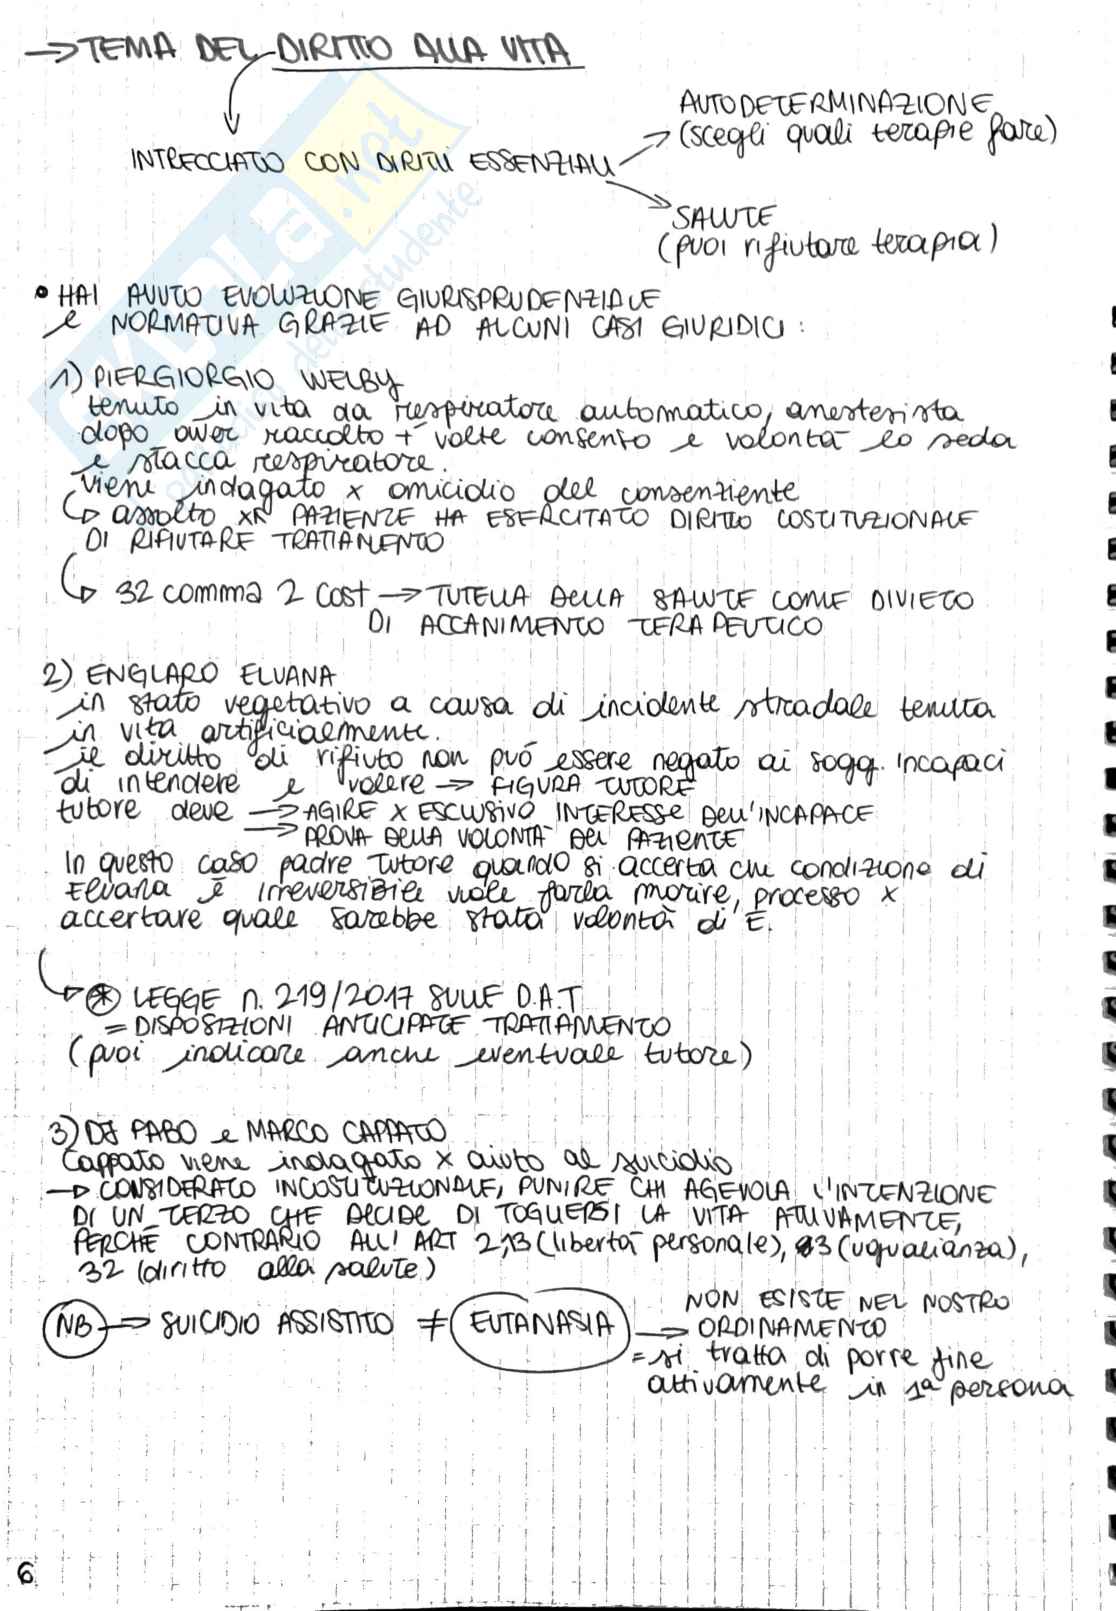 → TEMA DEL DIRITTO ALLA VITA
INTRECCIATO CON DIRITTI ESSENZIALI
AUTODETERMINAZIONE
(scegli quali terapie fare)
SALUTE
(puoi rifiutare terapia)
• HAI AVUTO EVOLUZIONE GIURISPRUDENZIALE
e NORMATIVA GRAZIE AD ALCUNI CASI GIURIDICI:
1) PIERGIORGIO WELBY
tenuto in vita da respiratore automatico, anestesista
dopo aver raccolto + volte consenso e volontà lo seda
e stacca respiratore.
viene indagato x omicidio del consenziente
↳ assolto xk PAZIENTE HA ESERCITATO DIRITTO COSTITUZIONALE
DI RIFIUTARE TRATTAMENTO
↳ 32 comma 2 Cost → TUTELLA DELLA SALUTE COME DIVIETO
DI ACCANIMENTO TERAPEUTICO
2) ENGLARO ELUANA
in stato vegetativo a causa di incidente stradale tenuta
in vita artificialmente.
il diritto di rifiuto non può essere negato ai sogg. incapaci
di intendere e volere → FIGURA TUTORE
tutore deve → AGIRE X ESCLUSIVO INTERESSE DELL'INCAPACE
→ PROVA DELLA VOLONTÀ DEL PAZIENTE
In questo caso padre tutore quando si accerta che condizione di
Eluana è irreversibile vuole farla morire, processo x
accertare quale sarebbe stata volontà di E.
↳ * LEGGE n. 219/2017 SULLE D.A.T
= DISPOSIZIONI ANTICIPATE TRATTAMENTO
(puoi indicare anche eventuale tutore)
3) DJ FABO e MARCO CAPPATO
Cappato viene indagato x aiuto al suicidio
→ CONSIDERATO INCOSTITUZIONALE, PUNIRE CHI AGEVOLA L'INTENZIONE
DI UN TERZO CHE DECIDE DI TOGLIERSI LA VITA ATTIVAMENTE,
PERCHÉ CONTRARIO ALL' ART 2,13 (libertà personale), 3 (uguaglianza),
32 (diritto alla salute)
NB → SUICIDIO ASSISTITO ≠ EUTANASIA → NON ESISTE NEL NOSTRO
ORDINAMENTO
= si tratta di porre fine
attivamente in 1ª persona
6
SKUOLA.net